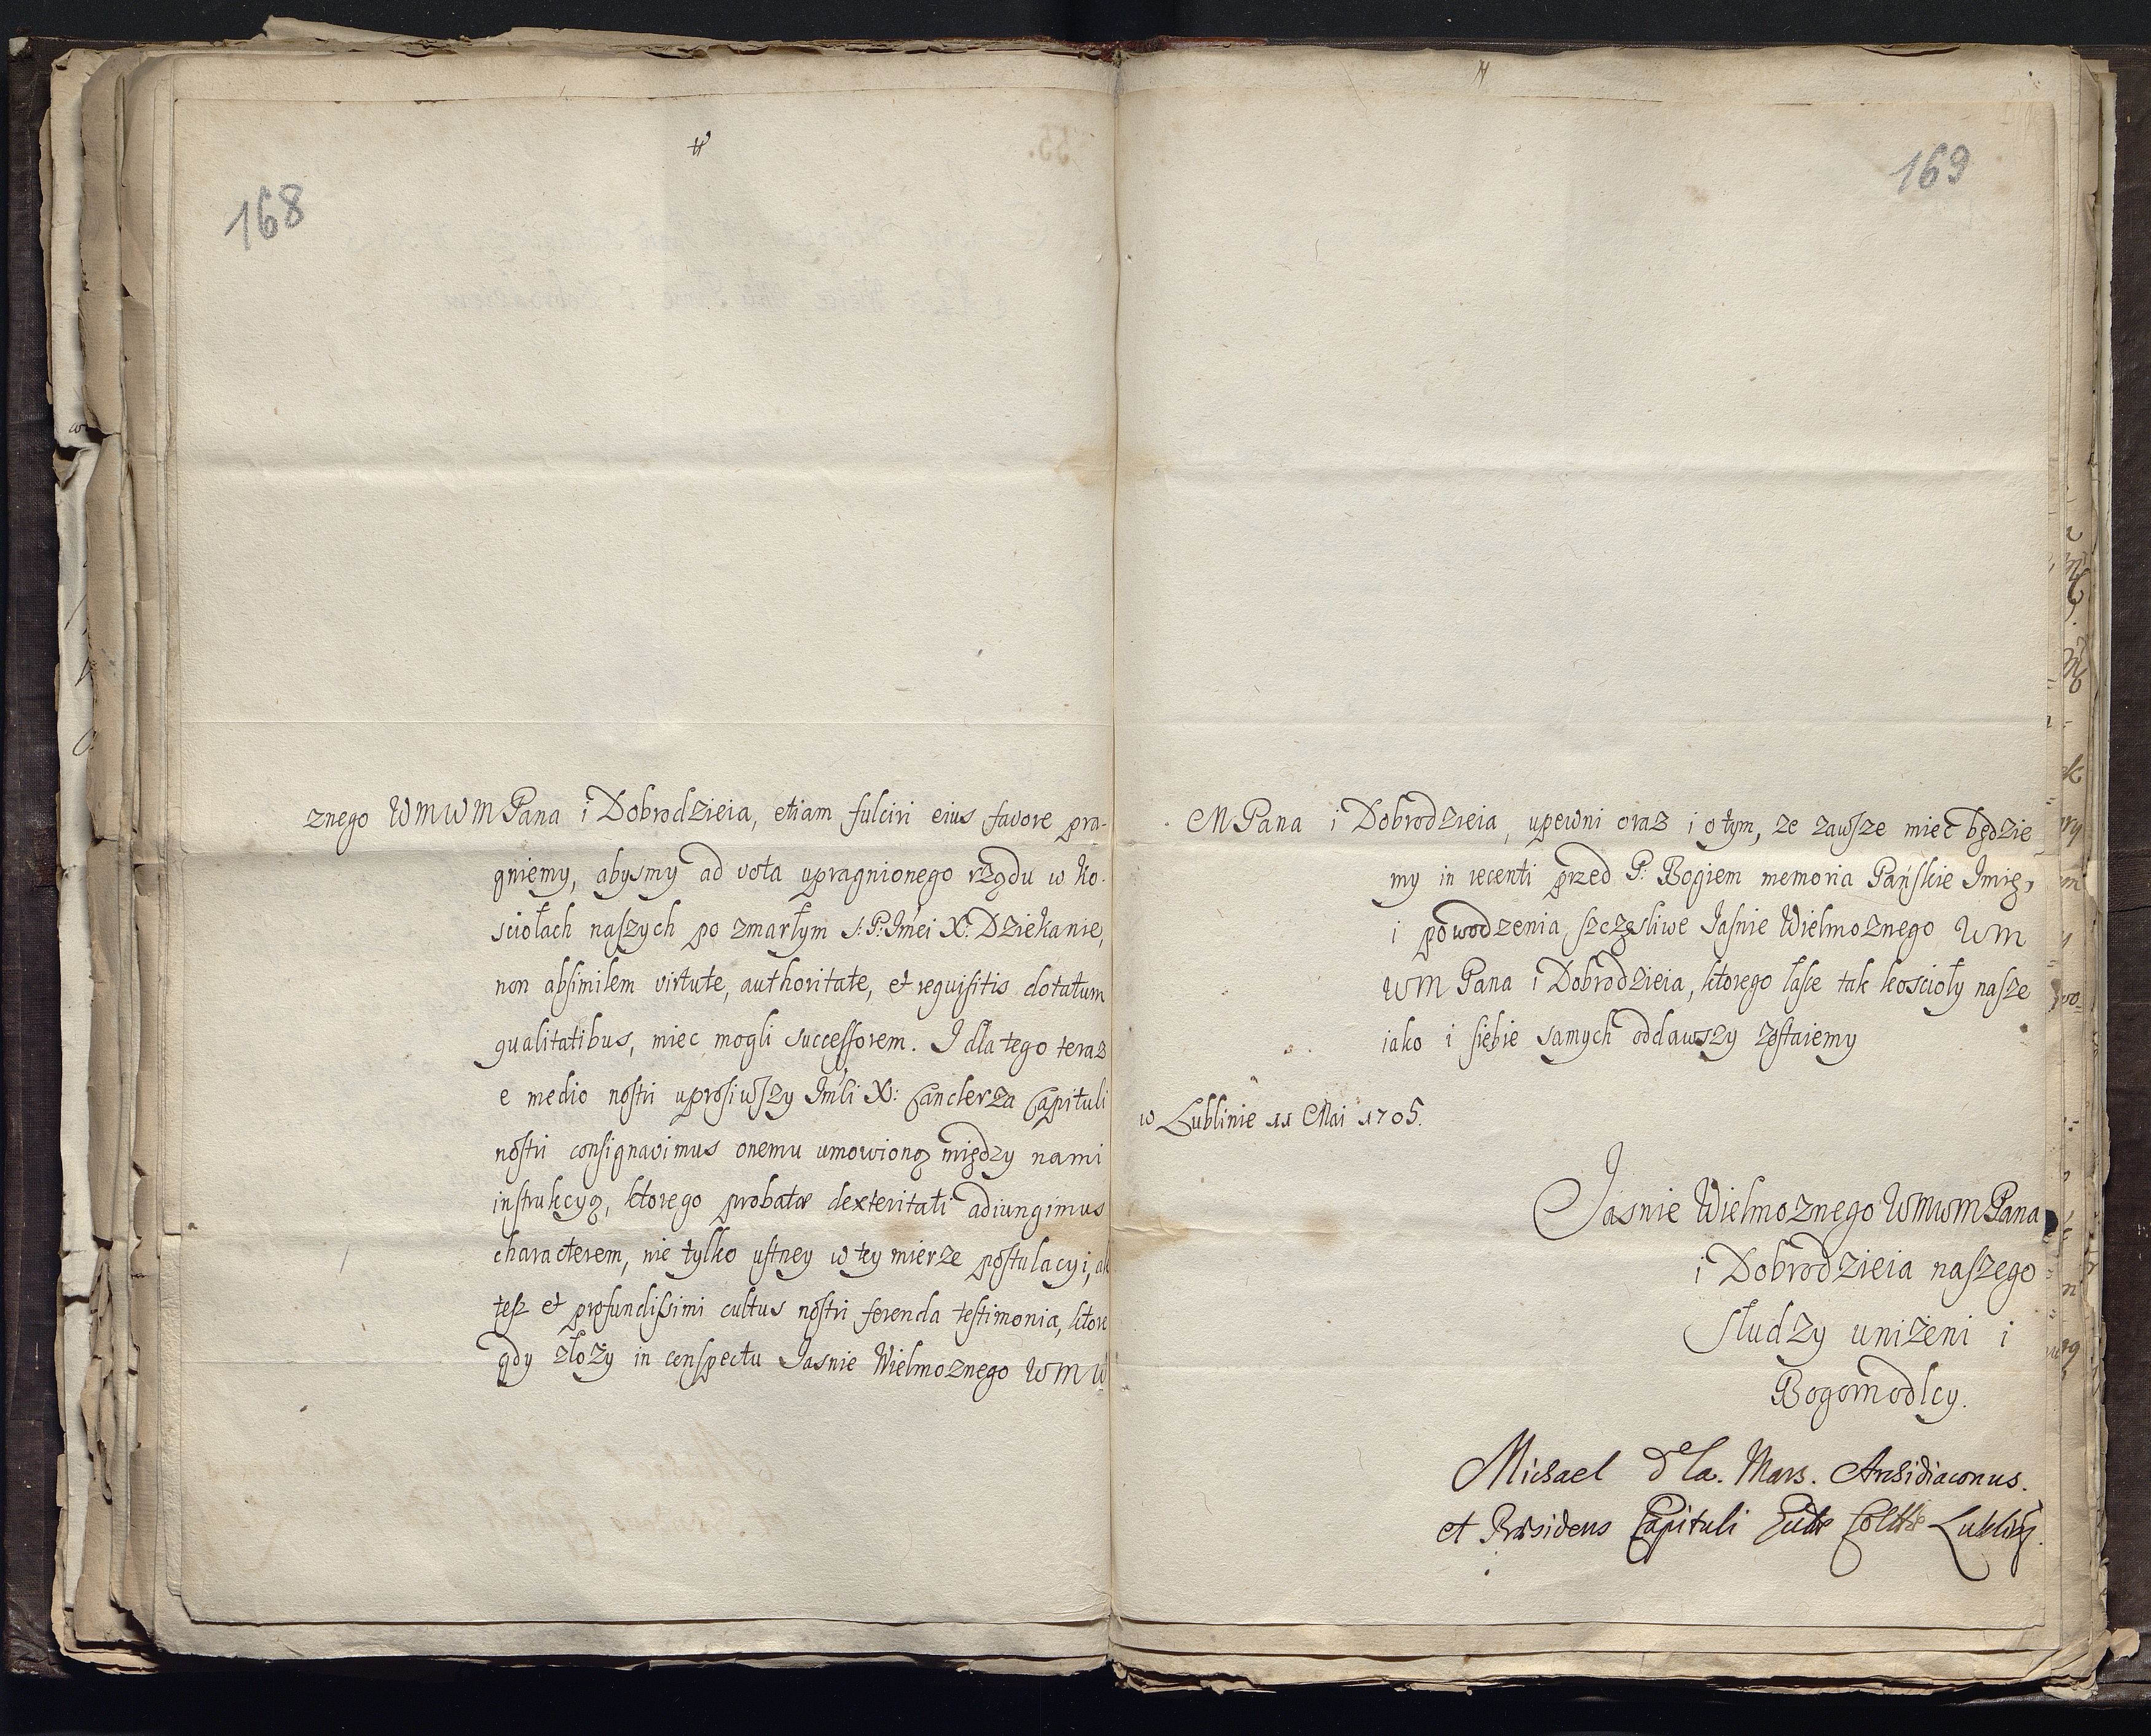 168
znego WMWM Pana i Dobrodzieia, etiam fulciri eius favore pra-
gniemy, abysmy ad vota upragnionego rządu w ko-
sciołach naszych po zmarłym S: P: Imci X: Dziekanie,
non absimilem virtute, authoritate, et requisitis dotatum
qualitatibus, miec mogli successorem. I dla tego teraz
e medio nostri uprosiwszy Imći X: Canclerza Capituli
nostri consignavimus onemu umowioną między nami
instrukcyą, ktorego probatæ dexteritati adiungimus
characterem, nie tylko ustney w tey mierze postulacyi, ale
tesz et profundissimi cultus nostri ferenda testimonia, ktore
gdy złoży in conspectu Iasnie Wielmoznego WMW
169
M Pana i Dobrodzieia, upewni oraz i o tym, ze zawsze miec będzie
my in recenti przed P: Bogiem memoria Pańskie Imię,
i powodzenia szczęsliwe Iasnie Wielmoznego WM
WM Pana i Dobrodzieia, ktorego łasce tak koscioły nasze
iako i siebie samych oddawszy zostaiemy
w Lublinie 11 Mai 1705.
Jasnie Wielmoznego WMWM Pana
i Dobrodzieia naszego
Słudzy uniżeni i
Bogomodlcy.
Michael de la Mars. Archidiaconus.
et Præsidens Capituli